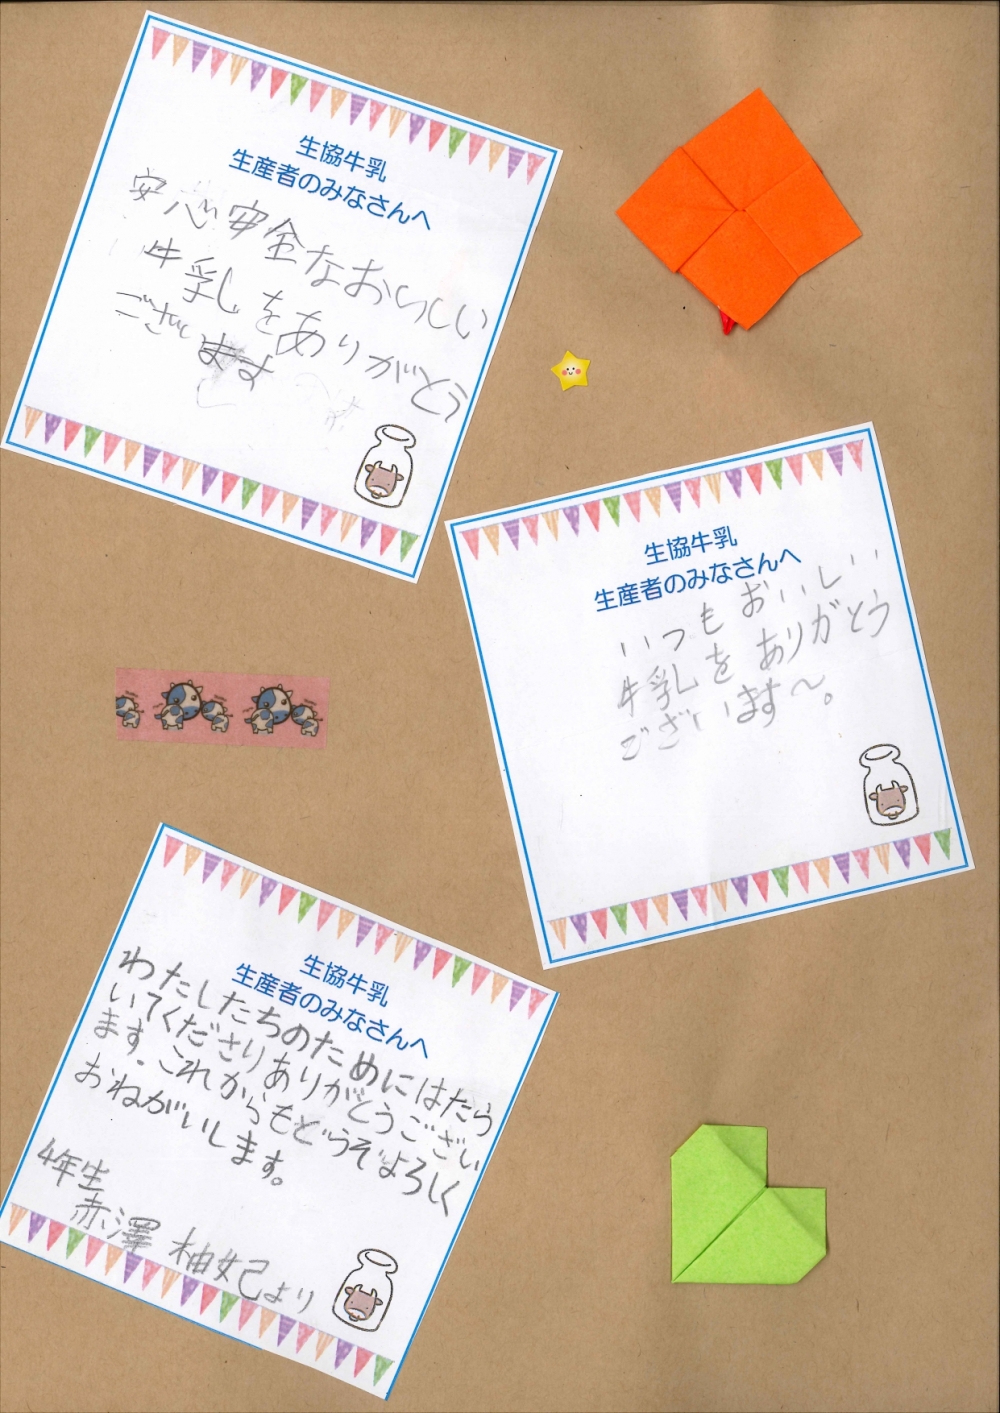 生協牛乳
生産者のみなさんへ
安心安全なおいしい
牛乳をありがとう
ございます
生協牛乳
生産者のみなさんへ
いつもおいしい
牛乳をありがとう
ございます〜。
生協牛乳
生産者のみなさんへ
わたしたちのためにはたら
いてくださりありがとうござい
ます。これからもどうぞよろしく
おねがいします。
4年生
赤澤 柚妃より